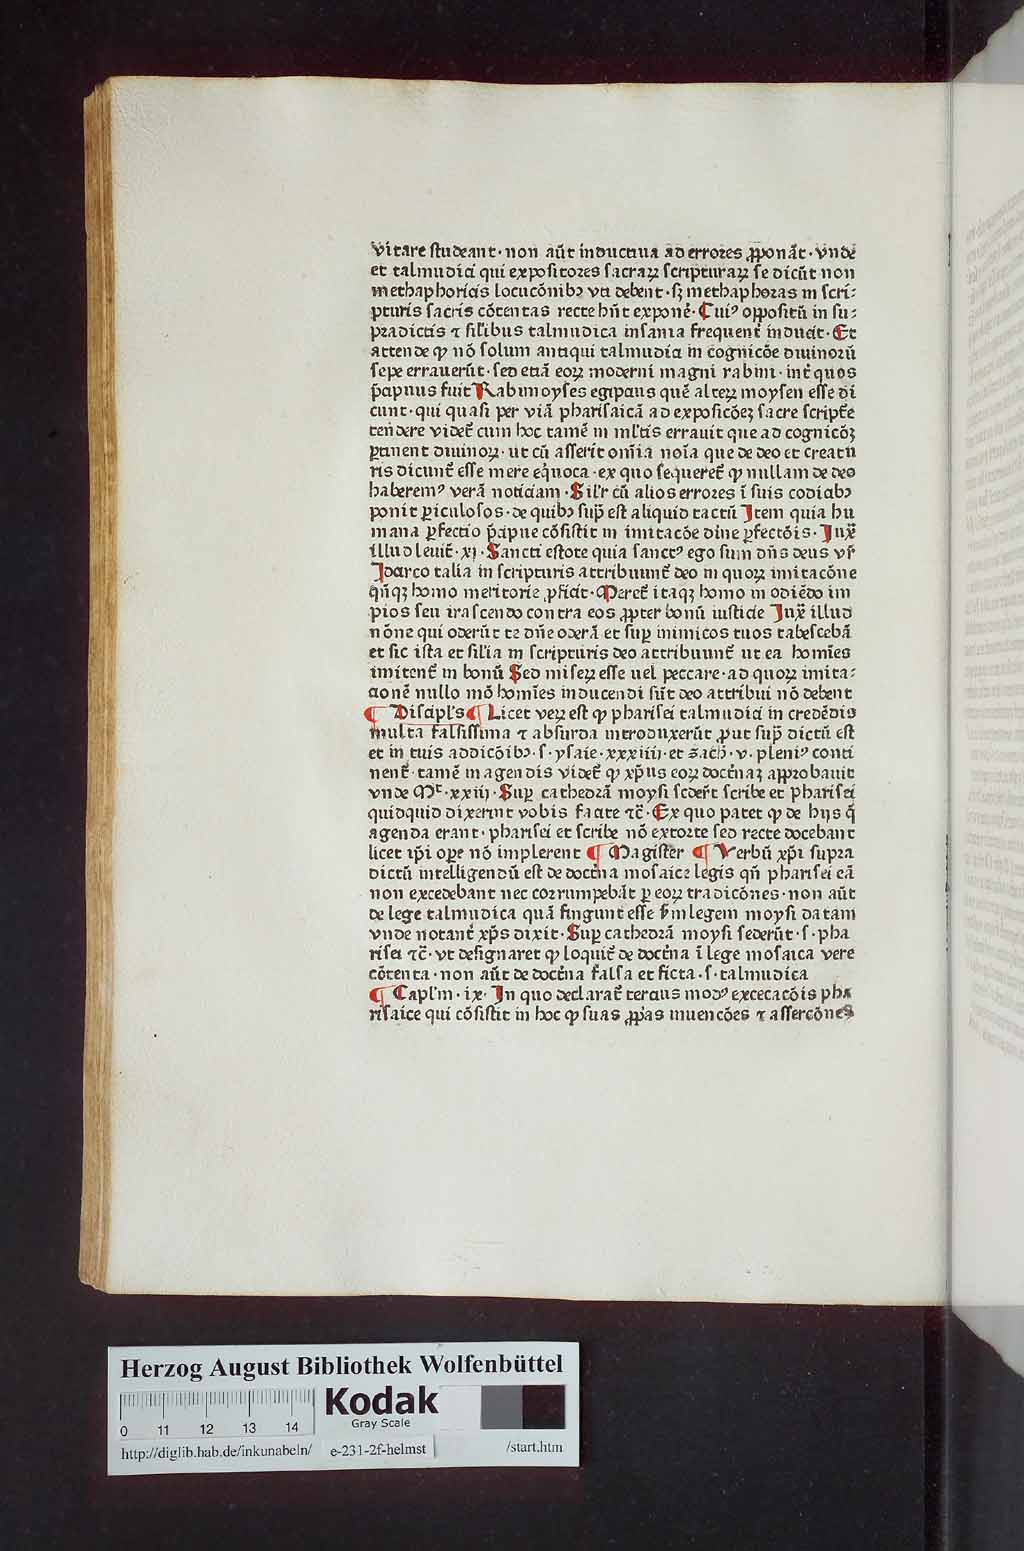 vitare studeant · non aūt inductiua ad errores ꝓponāt · vnde
et talmudici qui expositores sacraꝝ scripturaꝝ se dicūt non
methaphoricis locucōnibꝫ vti debent · sꝫ methaphoras in scri⸗
pturis sacris cōtentas recte hn̄t expone᷑ · Cuiꝰ oppositū in su⸗
pradictis ⁊ sil'ibus talmudica insania frequent᷑ inducit · Et
attende ꝙ nō solum antiqui talmudici in cognicōe diuinorū
sepe errauerūt · sed etiā eoꝝ moderni magni rabini · int᷑ quos
p̄cipuus fuit Rabimoyses egipcius quē alteꝝ moysen esse di
cunt · qui quasi per viā pharisaicā ad exposicōeꝫ sacre script᷑e
tendere videt᷑ cum hoc tamē in ml'tis errauit que ad cognicōꝫ
ꝑtinent diuinoꝝ · ut cū asserit om̄ia noīa que de deo et creatu
ris dicunt᷑ esse mere eq̄uoca · ex quo sequeret᷑ ꝙ nullam de deo
haberemꝰ verā noticiam · Sil'r cū alios errores ī suis codicibꝫ
ponit ꝑiculosos · de quibꝫ sup̄ est aliquid tactū Item quia hu
mana ꝑfectio p̄cipue cōsistit in imitacōe diuine ꝑfectōis · Iux᷑
illud leuit᷑ · xj · Sancti estote quia sanctꝰ ego sum dn̄s deus vr̄
Idcirco talia in scripturis attribuunt᷑ deo in quoꝝ imitacōne
qn̄qꝫ homo meritorie ꝓficit · Meret᷑ itaqꝫ homo in odiēdo im
pios seu irascendo contra eos ꝓpter bonū iusticie Iux᷑ illud
nōne qui oderūt te dn̄e oderā et sup̄ inimicos tuos tabescebā
et sic ista et sil'ia in scripturis deo attribuunt᷑ ut ea homīes
imitent᷑ in bonū Sed miseꝝ esse uel peccare · ad quoꝝ imita⸗
cionē nullo mō homīes inducendi sūt deo attribui nō debent
¶ Discipl's ¶ Licet veꝝ est ꝙ pharisei talmudici in credēdis
multa falsissima ⁊ absurda introduxerūt ꝓut sup̄ dictū est
et in tuis addicōibꝫ · s · ysaie · xxxiiij · et zach᷑ · v · pleniꝰ conti
nent᷑ · tamē in agendis videt᷑ ꝙ xp̄us eoꝝ doct᷑naꝫ approbauit
vnde Mᵗ · xxiij · Sup̄ cathedrā moysi seder̄t scribe et pharisei
quidquid dixerint vobis facite ⁊c̄ · Ex quo patet ꝙ de hijs q̄
agenda erant · pharisei et scribe nō extorte sed recte docebant
licet ip̄i oꝑe nō implerent ¶ Magister ¶ Verbū xp̄i supra
dictū intelligendū est de doct᷑na mosaice legis qn̄ pharisei eā
non excedebant nec corrumpebāt ꝑ eoꝝ tradicōnes · non aūt
de lege talmudica quā fingunt esse ẜm legem moysi datam
vnde notant᷑ xp̄s dixit · Sup̄ cathedrā moysi sederūt · s · pha
risei ⁊c̄ · vt designaret ꝙ loquit᷑ de doct᷑na ī lege mosaica vere
cōtenta · non aūt de doct᷑na falsa et ficta · s · talmudica
¶ Capl'm · ix · In quo declarat᷑ tercius modꝰ excecacōis pha
risaice qui cōsistit in hoc ꝙ suas ꝓprias inuencōes ⁊ assercōnes
Herzog August Bibliothek Wolfenbüttel
Kodak
Gray Scale
0 11 12 13 14
http://diglib.hab.de/inkunabeln/ e-231-2f-helmst /start.htm